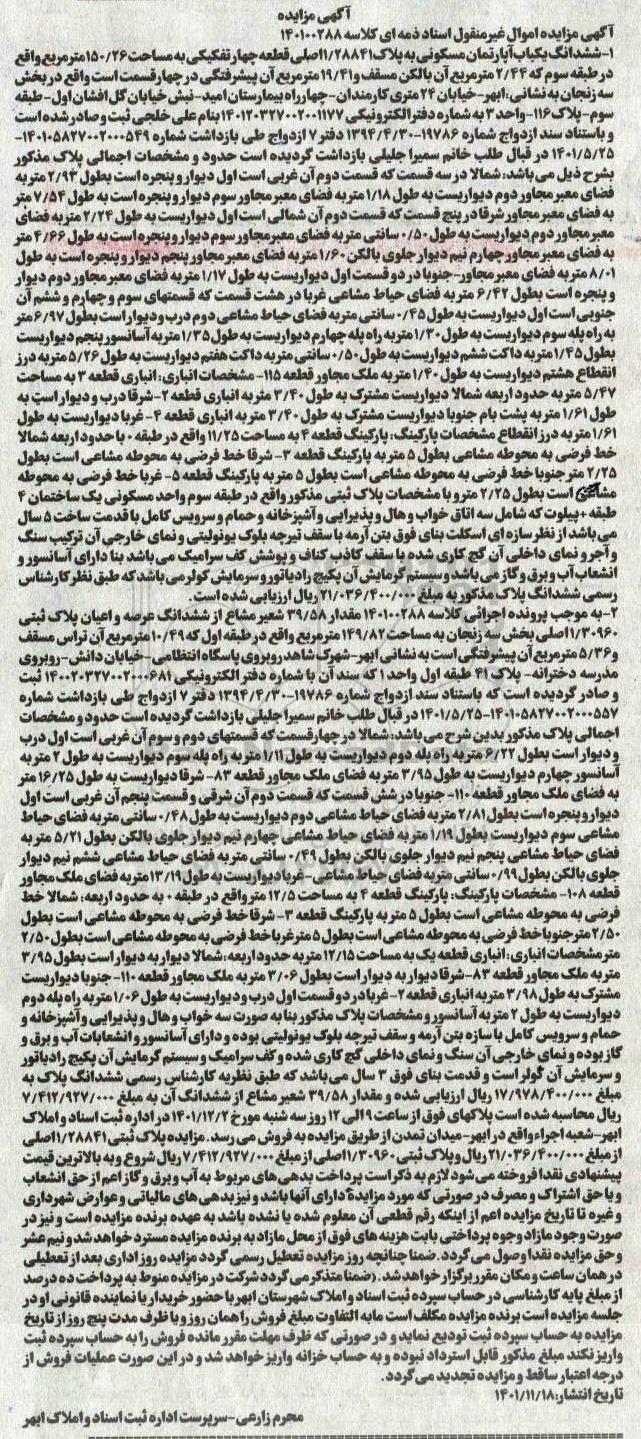 آگهی مزایده
آگهی مزایده اموال غیرمنقول اسناد ذمه ای کلاسه ۱۴۰۱۰۰۲۸۸
۱-ششدانگ یکباب آپارتمان مسکونی به پلاک ۱/۲۸۸۴۱اصلی قطعه چهار تفکیکی به مساحت ۱۵۰/۲۶مترمربع واقع
در طبقه سوم که ۲/۴۴ مترمربع آن بالکن مسقف و ۱۹/۴۱ مترمربع آن پیشرفتگی در چهار قسمت است واقع در بخش
سه زنجان به نشانی: ابهر-خیابان ۲۴ متری کارمندان-چهارراه بیمارستان امید-نبش خیابان گل افشان اول-طبقه
سوم-پلاک ۱۱۶-واحد ۳ به شماره دفتر الکترونیکی ۱۴۰۱۲۰۳۲۷۰۰۲۰۰۱۱۷۷ بنام علی خلجی ثبت و صادر شده است
و باستناد سند ازدواج شماره ۱۹۷۸۶-۱۳۹۴/۴/۳۰ دفتر ۷ ازدواج طی بازداشت شماره ۱۴۰۱۰۵۸۲۷۰۰۲۰۰۰۵۴۹-
۱۴۰۱/۵/۲۵ در قبال طلب خانم سمیرا جلیلی بازداشت گردیده است حدود و مشخصات اجمالی پلاک مذکور
بشرح ذیل می باشد: شمالا در سه قسمت که قسمت دوم آن غربی است اول دیوار و پنجره است بطول ۲/۹۳ متر به
فضای معبر مجاور دوم دیواریست به طول ۱/۱۸ متر به فضای معبر مجاور سوم دیوار و پنجره است به طول ۷/۵۴ متر
به فضای معبر مجاور شرقا در پنج قسمت که قسمت دوم آن شمالی است اول دیواریست به طول ۲/۲۴ متر به فضای
معبر مجاور دوم دیواریست به طول ۰/۵۰ سانتی متر به فضای معبر مجاور سوم دیوار و پنجره است به طول ۴/۶۶ متر
به فضای معبر مجاور چهارم نیم دیوار جلوی بالکن ۱/۶۰ متر به فضای معبر مجاور پنجم دیوار و پنجره است به طول
۸/۰۱ متر به فضای معبر مجاور-جنوبا در دو قسمت اول دیواریست به طول ۱/۱۷ متر به فضای معبر مجاور دوم دیوار
و پنجره است بطول ۶/۴۲ متر به فضای حیاط مشاعی غربا در هشت قسمت که قسمتهای سوم و چهارم و ششم آن
جنوبی است اول دیواریست به طول ۰/۴۵ سانتی متر به فضای حیاط مشاعی دوم درب و دیوار است بطول ۶/۹۷ متر
به راه پله سوم دیواریست به طول ۱/۳۰ متر به راه پله چهارم دیواریست به طول ۱/۳۵ متر به آسانسور پنجم دیواریست
بطول ۱/۴۵ متر به داکت ششم دیواریست به طول ۰/۵۰ سانتی متر به داکت هفتم دیواریست به طول ۵/۲۶ متر به درز
انقطاع هشتم دیواریست به طول ۱/۴۰ متر به ملک مجاور قطعه ۱۱۵- مشخصات انباری: انباری قطعه ۳ به مساحت
۵/۴۷ متر به حدود اربعه شمالا دیواریست مشترک به طول ۳/۴۰ متر به انباری قطعه ۲-شرقا درب و دیوار است به
طول ۱/۶۱ متر به پشت بام جنوبا دیواریست مشترک به طول ۳/۴۰ متر به انباری قطعه ۴- غربا دیواریست به طول
۱/۶۱ متر به درز انقطاع مشخصات پارکینگ: پارکینگ قطعه ۴ به مساحت ۱۱/۲۵ واقع در طبقه ۰ با حدود اربعه شمالا
خط فرضی به محوطه مشاعی بطول ۵ متر به پارکینگ قطعه ۳- شرقا خط فرضی به محوطه مشاعی است بطول
۲/۲۵ متر جنوبا خط فرضی به محوطه مشاعی است بطول ۵ متر به پارکینگ قطعه ۵- غربا خط فرضی به محوطه
مشاعی است بطول ۲/۲۵ متر و با مشخصات پلاک ثبتی مذکور واقع در طبقه سوم واحد مسکونی یک ساختمان ۴
طبقه +پیلوت که شامل سه اتاق خواب و هال و پذیرایی و آشپزخانه و حمام و سرویس کامل با قدمت ساخت ۵ سال
می باشد از نظر سازه ای اسکلت بنای فوق بتن آرمه با سقف تیرچه بلوک یونولیتی و نمای خارجی آن ترکیب سنگ
و آجر و نمای داخلی آن گچ کاری شده با سقف کاذب کناف و پوشش کف سرامیک می باشد بنا دارای آسانسور و
انشعاب آب و برق و گاز می باشد و سیستم گرمایش آن پکیج رادیاتور و سرمایش کولر می باشد که طبق نظر کارشناس
رسمی ششدانگ پلاک مذکور به مبلغ ۲۱/۰۳۶/۴۰۰/۰۰۰ ریال ارزیابی شده است.
۲-به موجب پرونده اجرائی کلاسه ۱۴۰۱۰۰۲۸۸ مقدار ۳۹/۵۸ شعیر مشاع از ششدانگ عرصه و اعیان پلاک ثبتی
۱/۳۰۹۶۰اصلی بخش سه زنجان به مساحت ۱۴۹/۸۲ مترمربع واقع در طبقه اول که ۱۰/۴۹ مترمربع آن تراس مسقف
و ۵/۳۶ مترمربع آن پیشرفتگی است به نشانی ابهر-شهرک شاهد روبروی پاسگاه انتظامی-خیابان دانش-روبروی
مدرسه دخترانه- پلاک ۴۱ طبقه اول واحد ۱ که سند آن با شماره دفتر الکترونیکی ۱۴۰۰۲۰۳۲۷۰۰۲۰۰۰۶۸۱ ثبت
و صادر گردیده است که باستناد سند ازدواج شماره ۱۹۷۸۶-۱۳۹۴/۴/۳۰ دفتر ۷ ازدواج طی بازداشت شماره
۱۴۰۱۰۵۸۲۷۰۰۲۰۰۰۵۵۷-۱۴۰۱/۵/۲۵ در قبال طلب خانم سمیرا جلیلی بازداشت گردیده است حدود و مشخصات
اجمالی پلاک مذکور بدین شرح می باشد: شمالا در چهار قسمت که قسمتهای دوم و سوم آن غربی است اول درب
و دیوار است بطول ۶/۲۲ متر به راه پله دوم دیواریست به طول ۱/۱۱ متر به راه پله سوم دیواریست به طول ۲ متر به
آسانسور چهارم دیواریست به طول ۳/۹۵ متر به فضای ملک مجاور قطعه ۸۳- شرقا دیواریست به طول ۱۶/۲۵ متر
به فضای ملک مجاور قطعه ۱۱۰- جنوبا در شش قسمت که قسمت دوم آن شرقی و قسمت پنجم آن غربی است اول
دیوار و پنجره است بطول ۲/۸۱ متر به فضای حیاط مشاعی دوم دیواریست به طول ۰/۴۸ سانتی متر به فضای حیاط
مشاعی سوم دیواریست بطول ۱/۱۹ متر به فضای حیاط مشاعی چهارم نیم دیوار جلوی بالکن بطول ۵/۲۱ متر به
فضای حیاط مشاعی پنجم نیم دیوار جلوی بالکن بطول ۰/۴۹ سانتی متر به فضای حیاط مشاعی ششم نیم دیوار
جلوی بالکن بطول ۰/۹۹ سانتی متر به فضای حیاط مشاعی-غربا دیواریست به طول ۱۳/۱۹متر به فضای ملک مجاور
قطعه ۱۰۸- مشخصات پارکینگ: پارکینگ قطعه ۴ به مساحت ۱۲/۵ متر واقع در طبقه ۰ به حدود اربعه: شمالا خط
فرضی به محوطه مشاعی است بطول ۵ متر به پارکینگ قطعه ۳- شرقا خط فرضی به محوطه مشاعی است بطول
۲/۵۰ متر جنوبا خط فرضی به محوطه مشاعی است بطول ۵ متر غربا خط فرضی به محوطه مشاعی است بطول ۲/۵۰
متر مشخصات انباری: انباری قطعه یک به مساحت ۱۲/۱۵ متر به حدود اربعه: شمالا دیوار به دیوار است بطول ۳/۹۵
متر به ملک مجاور قطعه ۸۳-شرقا دیوار به دیوار است بطول ۳/۰۶ متر به ملک مجاور قطعه ۱۱۰- جنوبا دیواریست
مشترک به طول ۳/۹۸ متر به انباری قطعه ۲-غربا در دو قسمت اول درب و دیواریست به طول ۱/۰۶ متر به راه پله دوم
دیواریست به طول ۲ متر به آسانسور و مشخصات پلاک مذکور بنا به صورت سه خواب و هال و پذیرایی و آشپزخانه و
حمام و سرویس کامل با سازه بتن آرمه و سقف تیرچه بلوک یونولیتی بوده و دارای آسانسور و انشعابات آب و برق و
گاز بوده و نمای خارجی آن سنگ و نمای داخلی گچ کاری شده و کف سرامیک و سیستم گرمایش آن پکیج رادیاتور
و سرمایش آن کولر است و قدمت بنای فوق ۳ سال می باشد که طبق نظریه کارشناس رسمی ششدانگ پلاک به
مبلغ ۱۷/۹۷۸/۴۰۰/۰۰۰ ریال ارزیابی شده و مقدار ۳۹/۵۸ شعیر مشاع از ششدانگ آن به مبلغ ۷/۴۱۲/۹۲۷/۰۰۰
ریال محاسبه شده است پلاکهای فوق از ساعت ۹ الی ۱۲ روز سه شنبه مورخ ۱۴۰۱/۱۲/۲ در اداره ثبت اسناد و املاک
ابهر-شعبه اجراء واقع در ابهر-میدان تمدن از طریق مزایده به فروش می رسد. مزایده پلاک ثبتی ۱/۲۸۸۴۱اصلی
از مبلغ ۲۱/۰۳۶/۴۰۰/۰۰۰ ریال و پلاک ثبتی ۱/۳۰۹۶۰اصلی از مبلغ ۷/۴۱۲/۹۲۷/۰۰۰ریال شروع و به بالاترین قیمت
پیشنهادی نقدا فروخته می شود لازم به ذکر است پرداخت بدهی های مربوط به آب و برق و گاز اعم از حق انشعاب
و یا حق اشتراک و مصرف در صورتی که مورد مزایده دارای آنها باشد و نیز بدهی های مالیاتی و عوارض شهرداری
و غیره تا تاریخ مزایده اعم از اینکه رقم قطعی آن معلوم شده یا نشده باشد به عهده برنده مزایده است و نیز در
صورت وجود مازاد وجوه پرداختی بابت هزینه های فوق از محل مازاد به برنده مزایده مسترد خواهد شد و نیم عشر
و حق مزایده نقدا وصول می گردد. ضمنا چنانچه روز مزایده تعطیل رسمی گردد مزایده روز اداری بعد از تعطیلی
در همان ساعت و مکان مقرر برگزار خواهد شد. (ضمنا متذکر می گردد شرکت در مزایده منوط به پرداخت ده درصد
از مبلغ پایه کارشناسی در حساب سپرده ثبت اسناد و املاک شهرستان ابهر با حضور خریدار یا نماینده قانونی او در
جلسه مزایده است برنده مزایده مکلف است مابه التفاوت مبلغ فروش را همان روز و یا ظرف مدت پنج روز از تاریخ
مزایده به حساب سپرده ثبت تودیع نماید و در صورتی که ظرف مهلت مقرر مانده فروش را به حساب سپرده ثبت
واریز نکند مبلغ مذکور قابل استرداد نبوده و به حساب خزانه واریز خواهد شد و در این صورت عملیات فروش از
درجه اعتبار ساقط و مزایده تجدید می گردد.
تاریخ انتشار: ۱۴۰۱/۱۱/۱۸
محرم زارعی-سرپرست اداره ثبت اسناد و املاک ابهر